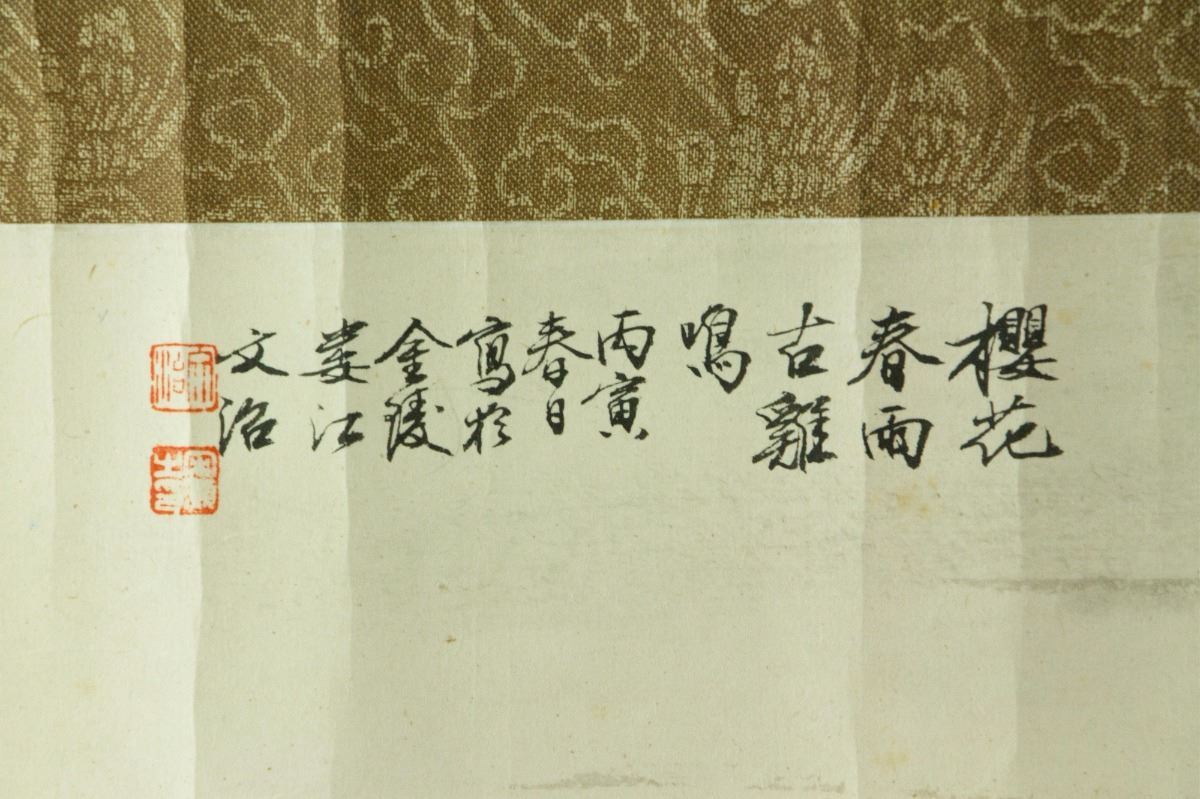 櫻花
春雨
古雞
鳴
丙寅
春日
寫於
金陵
婁江
文治